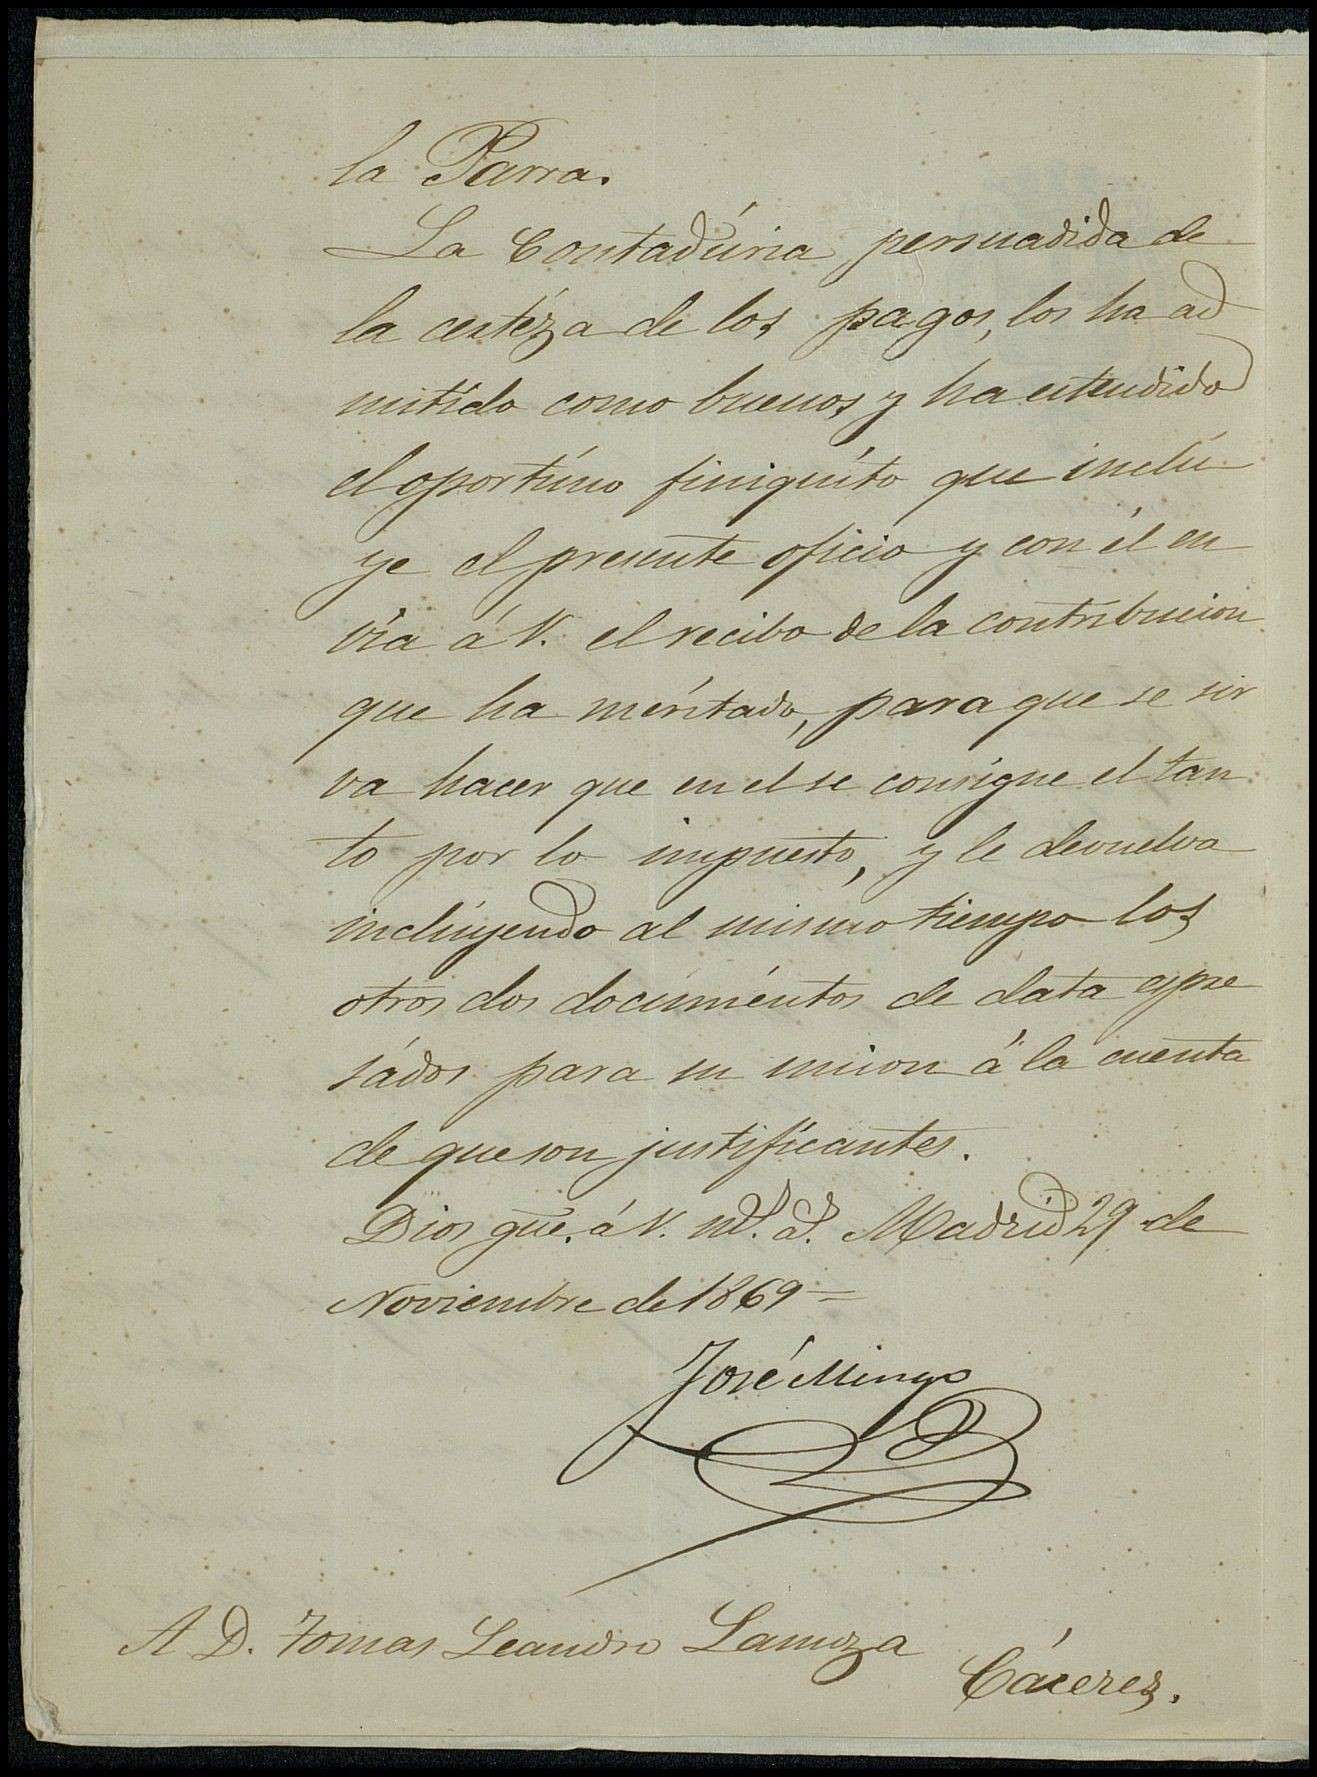 la Parra.
La Contadúria persuadida de
la certéza de los pagos, los ha ad
mitído como buenos y ha estendido
el oportúno finiquíto que inclú
ye el presente oficio y con él en
vía á V. el recibo de la contribucion
que ha méritado, para que se sir
va hacer que en el se consigne el tan
to por lo impuesto, y le devuelva
inclúyendo al mismo tiempo los
otros dos documéntos de data espre
sádos para su union á la cuenta
de que son justifícantes.
Dios gue. á V. ms. as. Madrid 29 de
Noviembre de 1869=
José Mingo
A D. Tomas Leandro Lamoza
Cáceres.